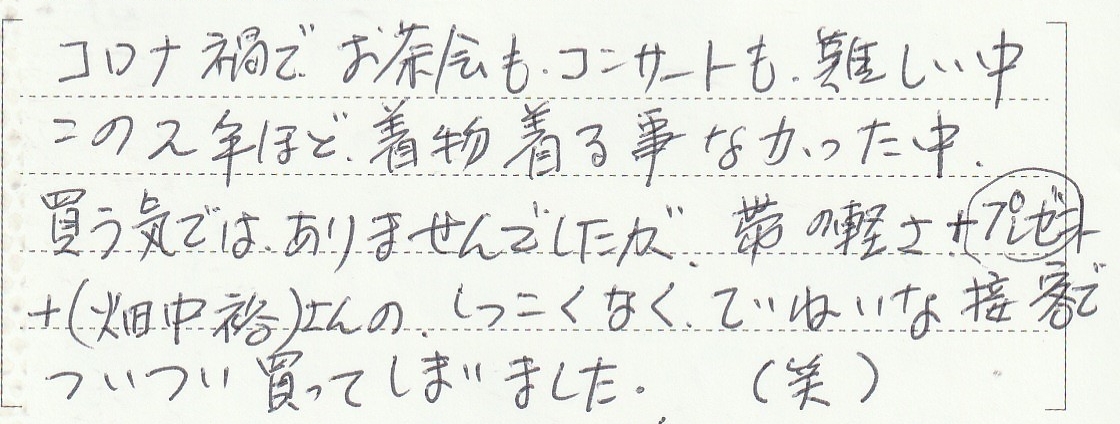 コロナ禍で、お茶会も、コンサートも、難しい中
この2年ほど、着物着る事なかった中、
買う気では、ありませんでしたが、帯の軽さ+プレゼント
+(畑中裕)さんの、しつこくなく、ていねいな接客で
ついつい買ってしまいました。 (笑)